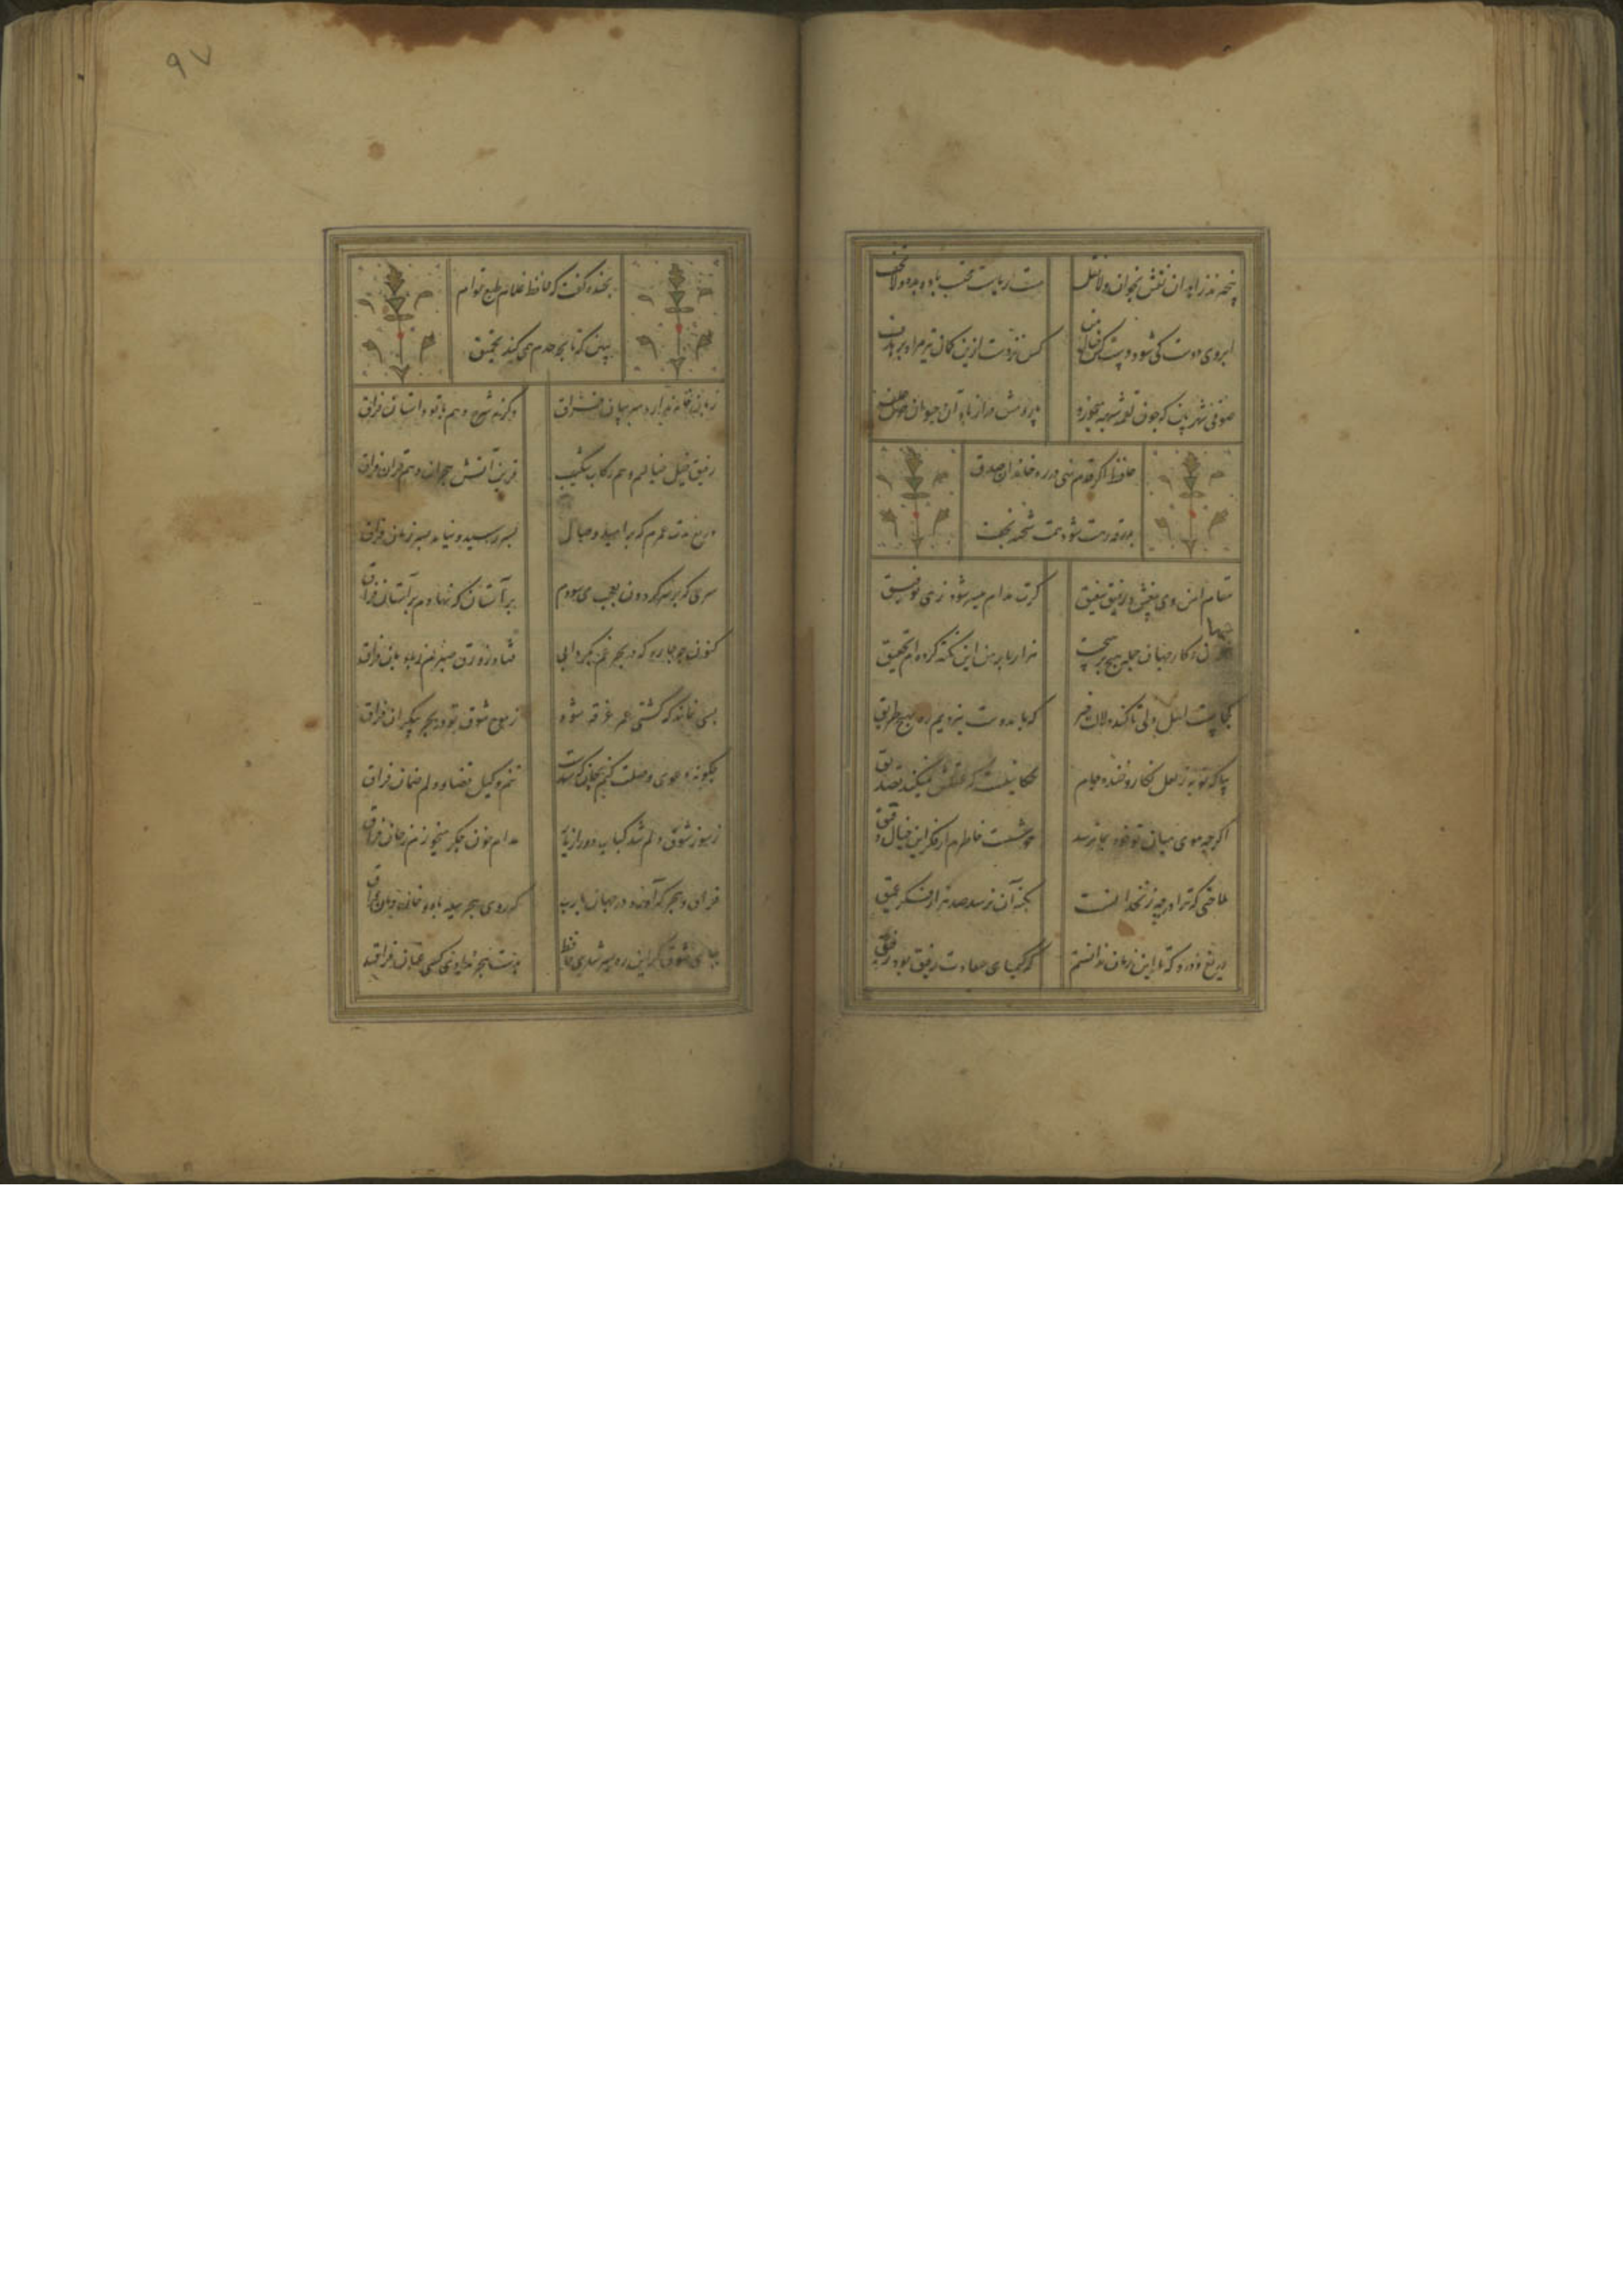 بیخبرند زاهدان نقش بخوان ولا تقل
مست ریاست محتسب باده بده ولا تخف
ابروی دوست کی شود دست کش خیال من
کس نزدست ازین کمان تیر مراد بر هدف
صوفی شهر بین که چون لقمه شبهه میخورد
پاردمش دراز باد آن حیوان خوش علف
حافظ اگر قدم نهی در ره خاندان صدق
بدرقه رهت شود همت شحنه نجف
مقام امن و می بیغش و رفیق شفیق
گرت مدام میسر شود زهی توفیق
جهان و کار جهان جمله هیچ بر هیچست
هزار بار من این نکته کرده‌ام تحقیق
کجاست اهل دلی تا کند دلالت خیر
که ما بدوست نبردیم ره بهیچ طریق
بیا که توبه ز لعل نگار و خنده جام
حکایتیست که عقلش نمیکند تصدیق
اگرچه موی میان تو خود بما نرسد
خوشست خاطرم از فکر این خیال دقیق
حلاوتی که ترا در چه زنخدانست
بکنه آن نرسد صد هزار فکر عمیق
دریغ و درد که تا این زمان ندانستم
که کیمیای سعادت رفیق بود رفیق
۹۷
بخنده گفت که حافظ غلام طبع توام
ببین که تا بچه حدم همی کند تحمیق
زبان خامه ندارد سر بیان فراق
وگرنه شرح دهم با تو داستان فراق
رفیق خیل خیالیم و هم رکاب شکیب
قرین آتش هجران و هم قران فراق
دریغ مدت عمرم که بر امید وصال
بسر رسید و نیامد بسر زمان فراق
سری که بر سر گردون بعجب می سودم
بر آستان که نهادم بر آستان فراق
کنون چه چاره که در بحر غم بگردابی
فتاد زورق صبرم ز بادبان فراق
بسی نماند که کشتی عمر غرقه شود
ز موج شوق تو در بحر بیکران فراق
چگونه دعوی وصلت کنم بجان که شدست
تنم وکیل قضا و دلم ضمان فراق
ز سوز شوق دلم شد کباب دور از یار
مدام خون جگر میخورم ز خوان فراق
فراق و هجر که آورد در جهان یا رب
که روی هجر سیه باد و خان و مان فراق
بپای شوق گر این ره بسر شدی حافظ
بدست هجر ندادی کسی عنان فراق